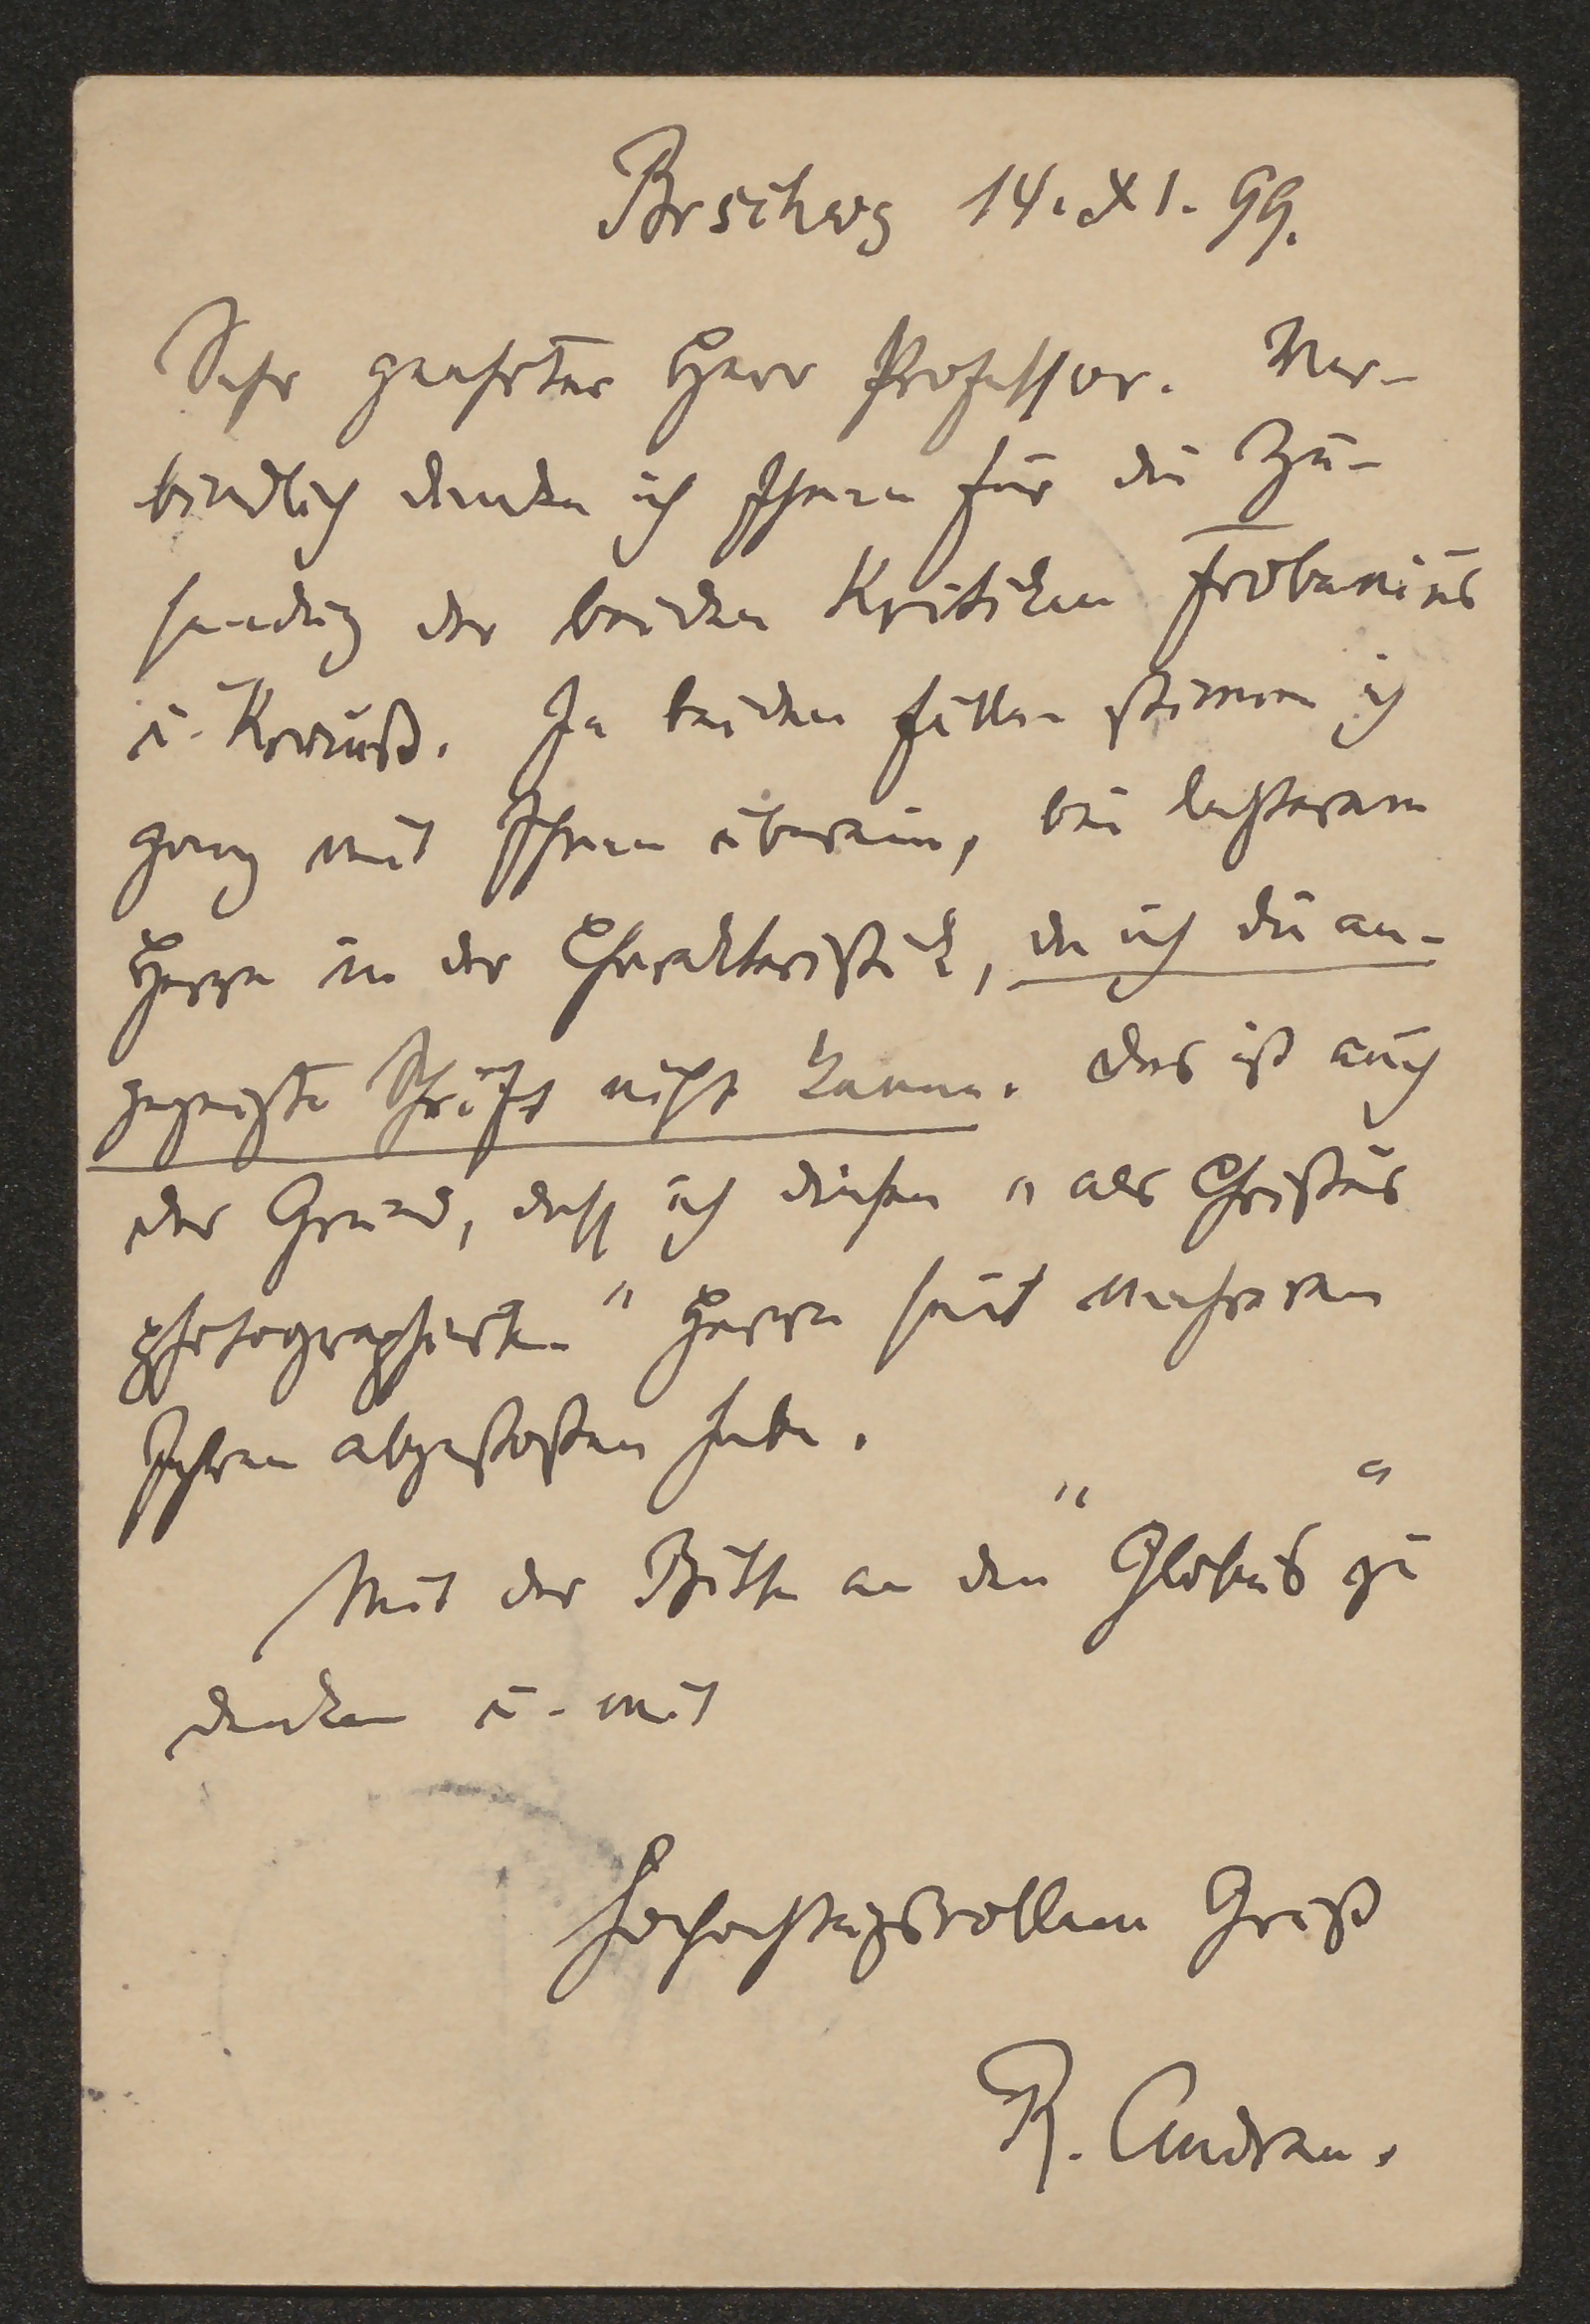 Brschwg 14. XI. 99.
Sehr geehrter Herr Professor. Ver-
bindlich danke ich Ihnen für die Zu-
sendung der beiden Kritiken Frobenius
u. Krauß. In beiden Fällen stimme ich
ganz mit Ihnen überein, bei letzterem
Herrn in der Charakteristik, da ich die an-
gezeigte Schrift nicht kenne. Das ist auch
der Grund, dass ich diesen „als Christus
photographierten" Herrn seit mehreren
Jahren abgestoßen habe.
Mit der Bitte an den "Globus" zu
denken u. mit
hochachtungsvollem Gruß
R. Andree.